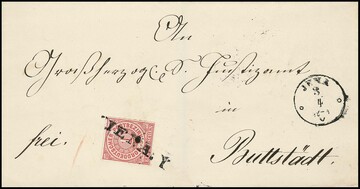 An
Großherzogl. S. Justizamt
in
frei.
Buttstädt.
JENA
3
4
JENA.